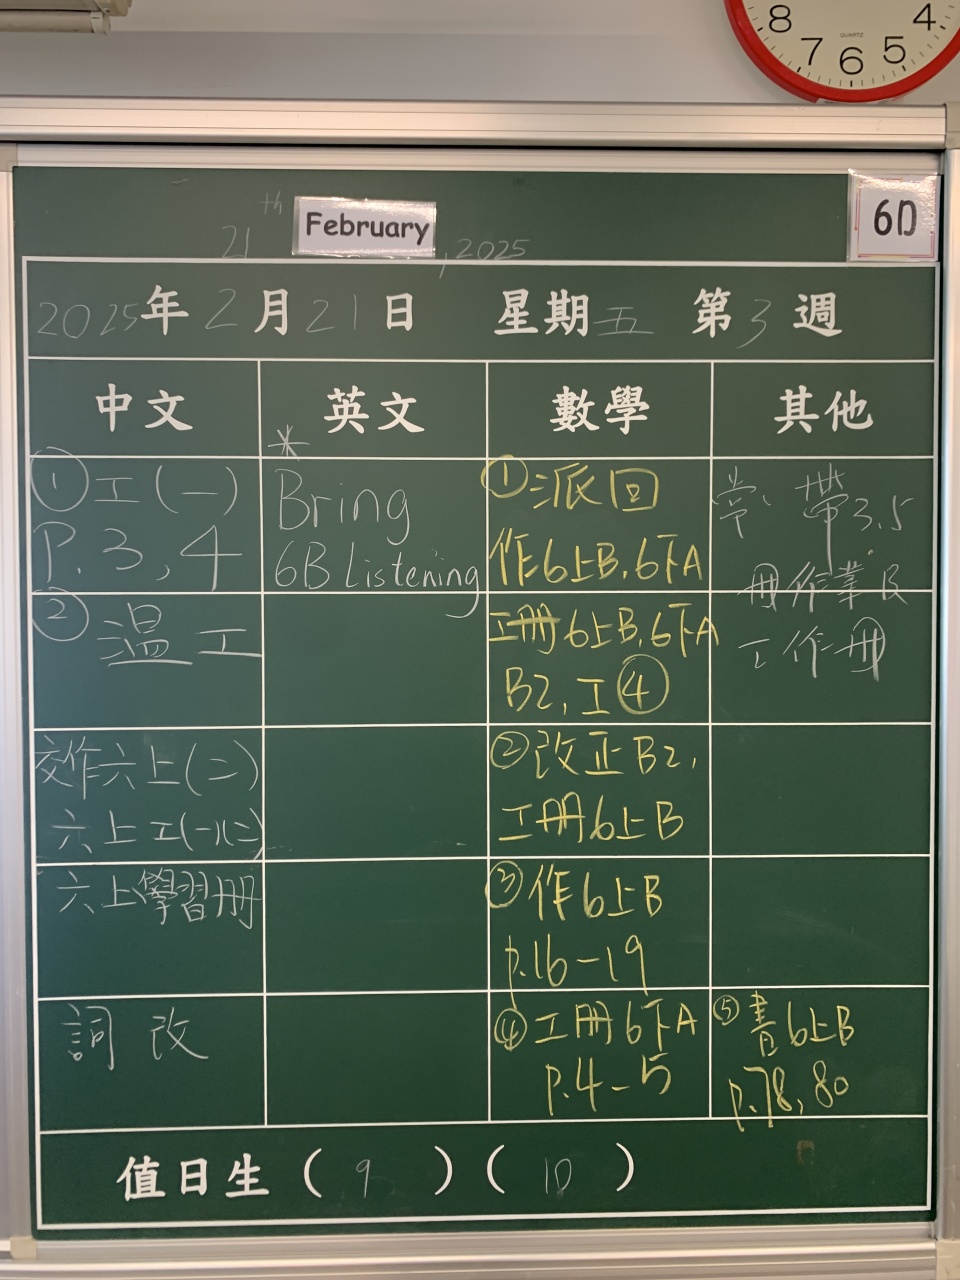 8 7 6 5 4
QUARTZ
21th February, 2025
6D
2025年2月21日 星期五 第3週
中文 英文 數學 其他
①工(一)
P.3,4
②溫工
交作六上(二)
六上工(一)(二)
六上學習冊
詞改
*
Bring
6B Listening
①派回
作6上B,6下A
工冊6上B,6下A
B2,工④
②改正B2,
工冊6上B
③作6上B
p.16-19
④工冊6下A
p.4-5
常 帶3.5
冊作業及
工作冊
⑤書6上B
p.78,80
值日生(9)(10)